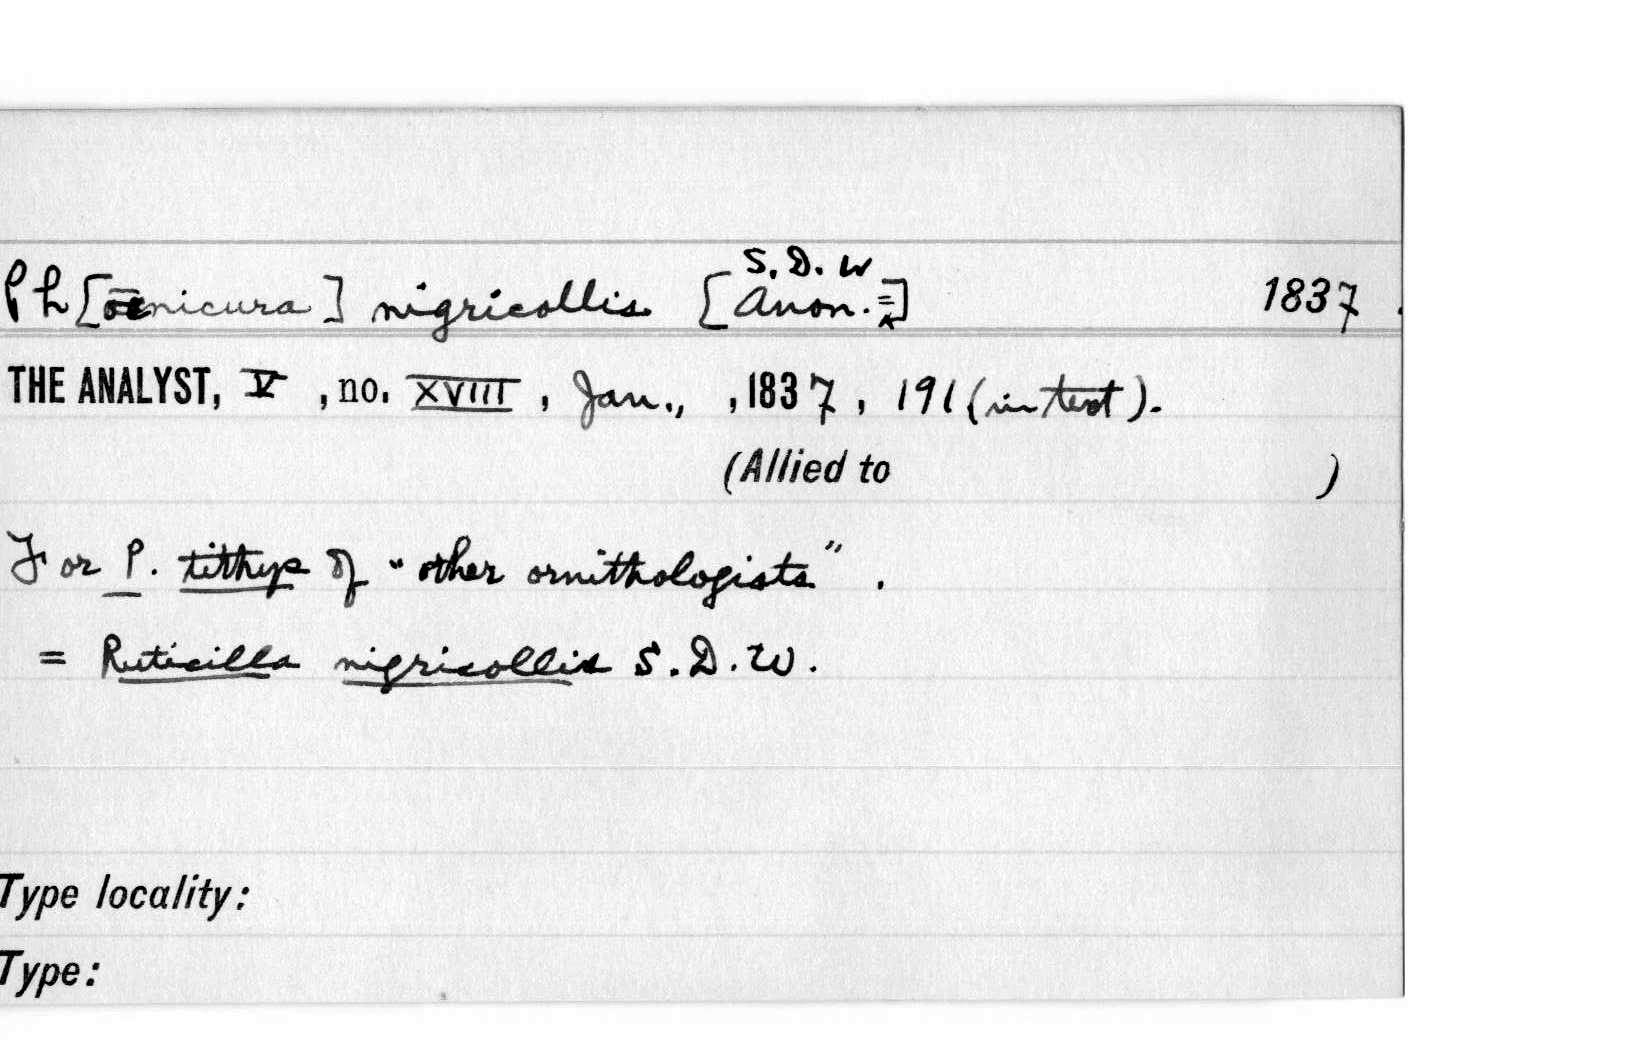 S. D. W
Ph[oenicura] nigricollis [Anon. =] 1837.
THE ANALYST, V, no. XVIII, Jan., ,1837, 191 (in text).
(Allied to )
For P. tithys of "other ornithologists".
= Ruticilla nigricollis S.D.W.
Type locality:
Type: